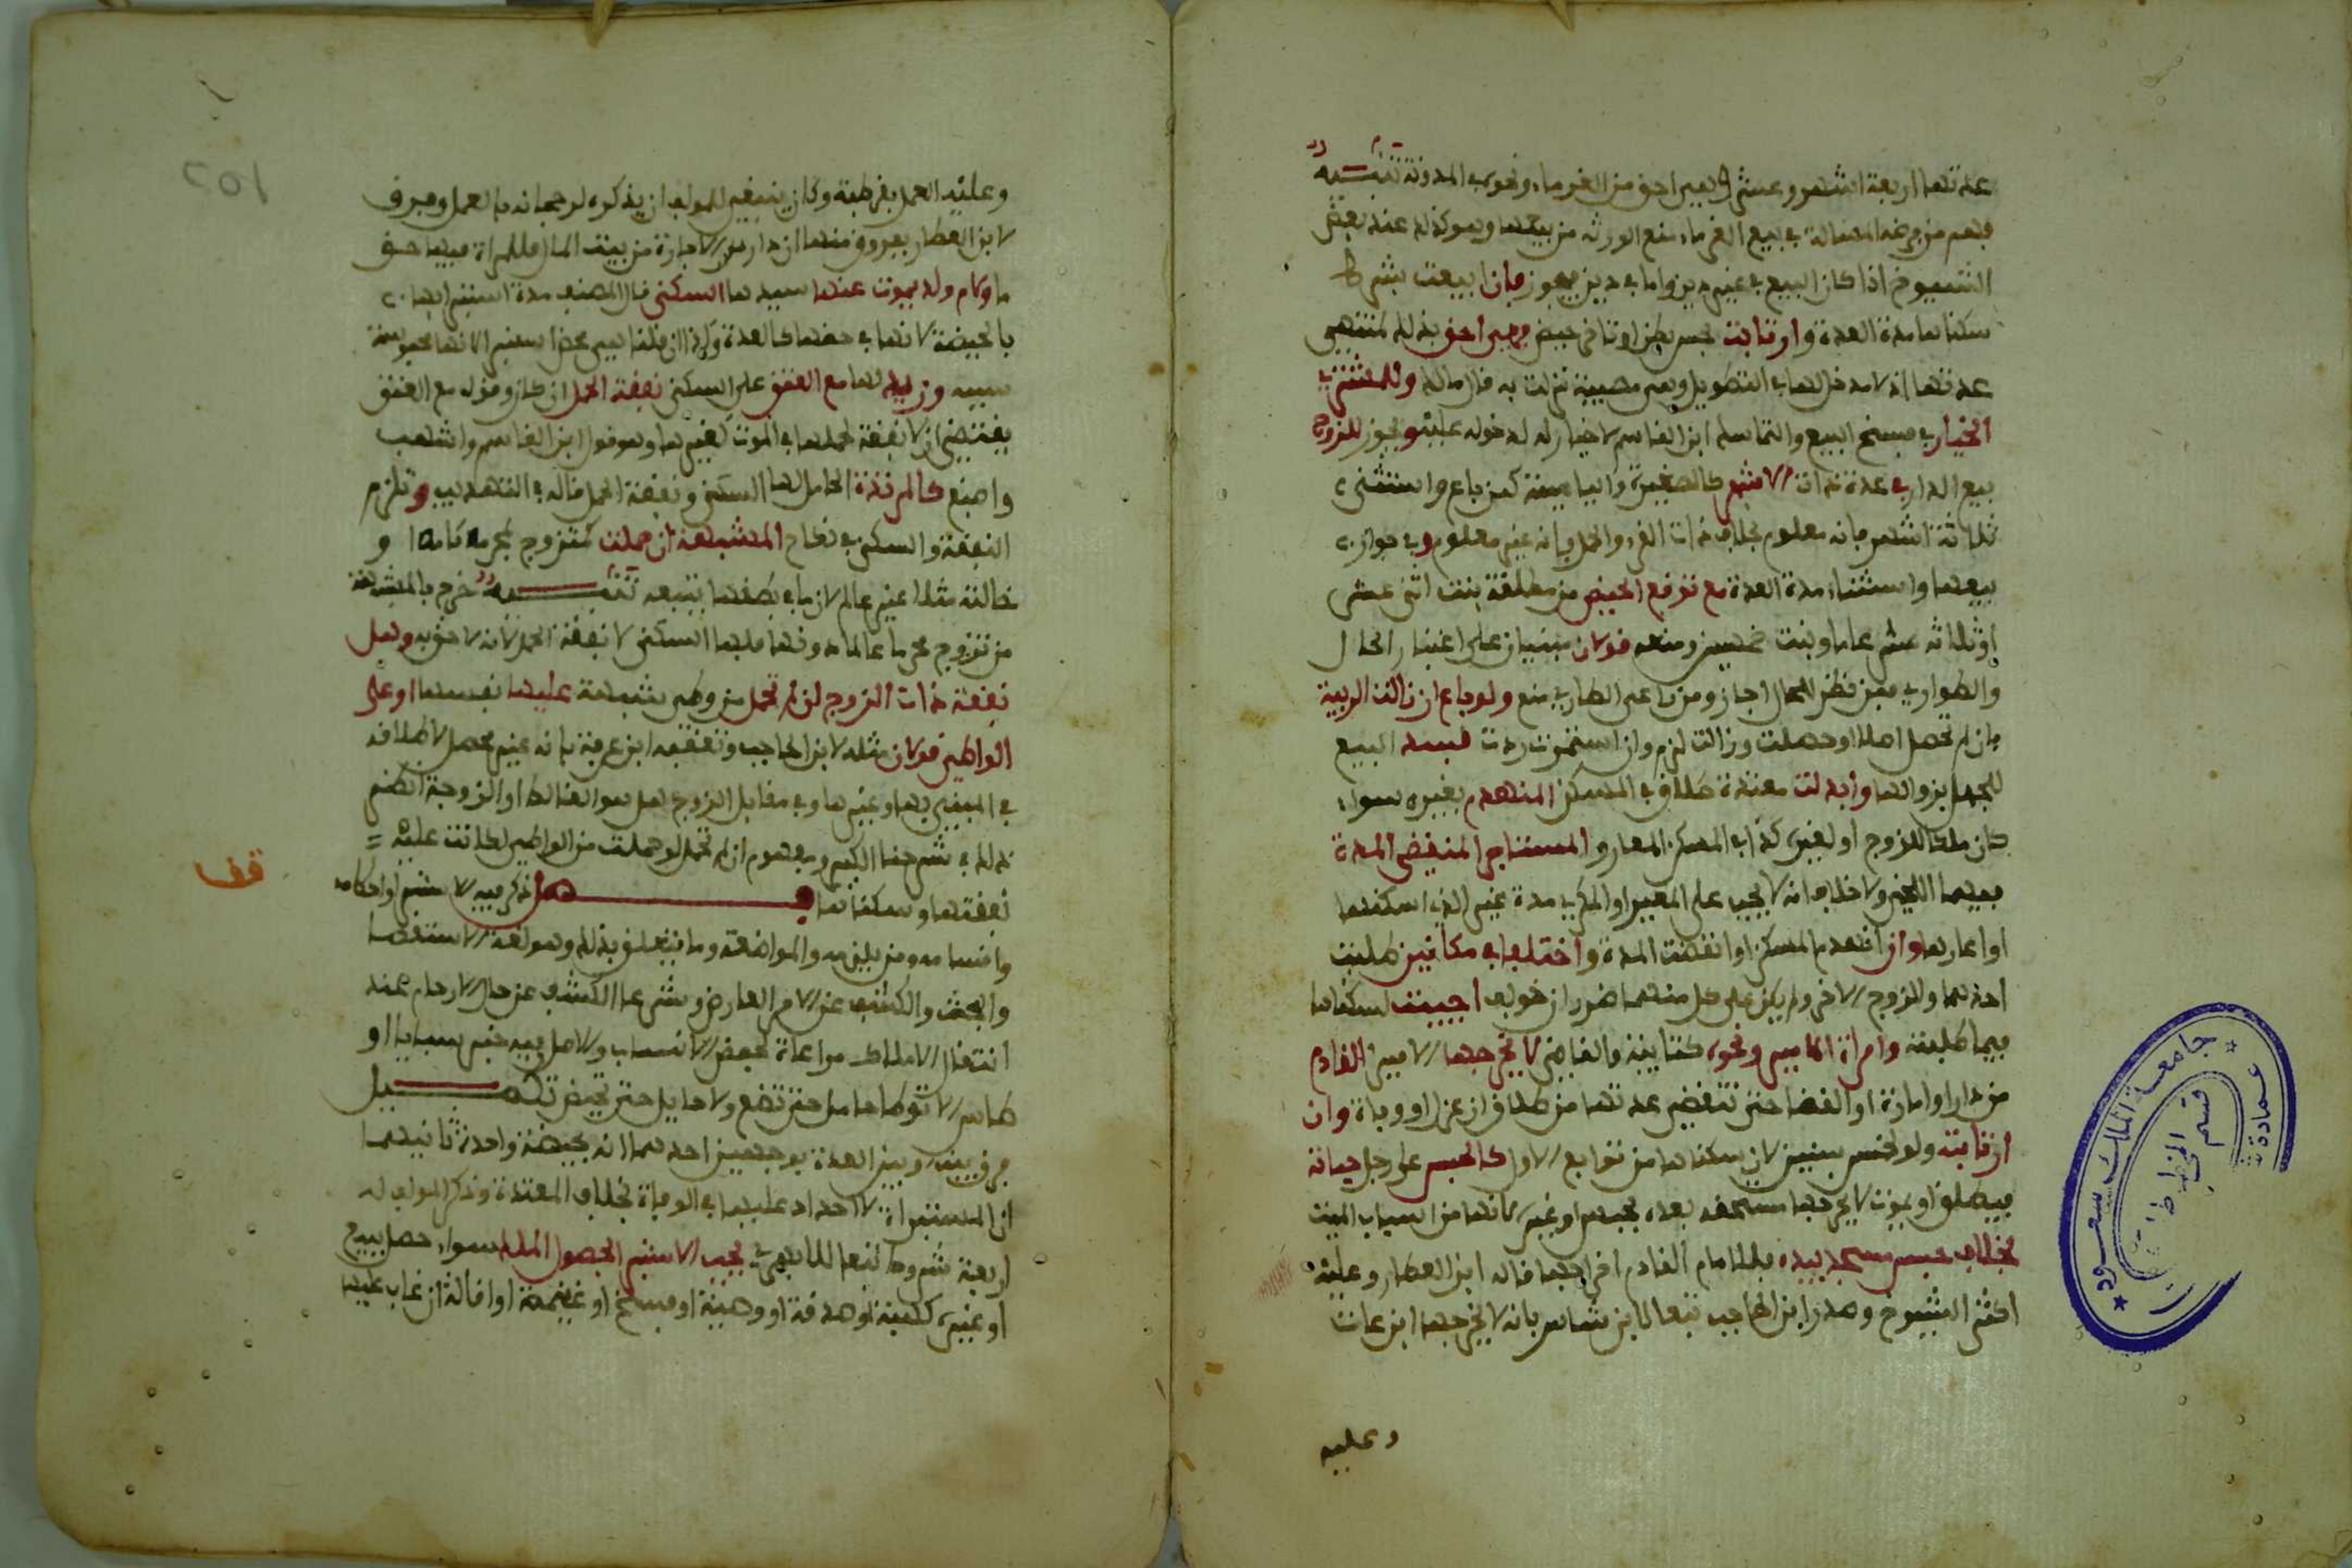 عدتها اربعة اشهر وعشر فهي احق من الغرماء ونحوه في المدونة تنبيه
فهم من فرضه المسالة في بيع الغرماء منع الورثة من بيعها وهو كذلك عند بعض
الشيوخ اذا كان البيع في غير دين واما في دين فيجوز فان بيعت بشرط
سكناها مدة العدة وارتابت بجس بطن او تاخر حيض فهي احق بذلك لمنتهى
عدتها اذ لا مدخل لها في التطويل وهي مصيبة نزلت به قال مالك وللمشتري
الخيار في فسخ البيع والتماسك ابن القاسم لا خيار له لدخوله عليه ويجوز للزوج
بيع الدار في عدة ذات الاشهر كالصغيرة واليايسة كمن باع واستثنى
ثلاثة اشهر فانه معلوم بخلاف ذات القرء والحمل فانه غير معلوم وفي جواز
بيعها واستثناء مدة العدة مع توقع الحيض من مطلقة بنت اثنى عشر
او ثلاثة عشر عاما او بنت خمسين ومنعه قولان مبنيان على اعتبار الحال
والطواري فمن نظر للحال اجاز ومن راعى الطاري منع ولو باع ان زالت الريبة
فان لم تحصل اصلا او حصلت وزالت لزم وان استمرت ردت فسد البيع
للجهل بزوالها وابدلت معتدة طلاق في المسكن المنهدم بغيره سواء
كان ملكا للزوج او لغيره كذا في المسكن المعار والمستاجر المنقضي المدة
فيهما اللخمي ولا خلاف انه لا يجب على المعير او المكري مدة غير الذي اسكنها
او اعارها وان انهدم المسكن او انقضت المدة واختلفا في مكانين طلبت
احدهما والزوج الاخر ولم يكن على كل منهما ضرر ان خولف اجيبت لسكناها
فيما طلبته وامراة الامير ونحوه كنايبه والقاضي لا يخرجها الامير القادم
من دار او امارة او القضا حتى تنقضي عدتها من طلاق ان عزل او وفاة وان
ارتابت ولو لخمس سنين لان سكناها من توابع الاول كالحبس على رجل حياته
فيطلق او يموت لا يخرجها مستحقه بعده بحبس او غيره لانها من اسباب الميت
بخلاف حبس مسجد بيده فللامام القادم اخراجها قاله ابن العطار وعليه
اكثر الشيوخ وصدر ابن الحاجب تبعا لابن شاس بانه لا يخرجها ابن عات
وعليه
وعليه العمل بقرطبة وكان ينبغي للمولف ان يذكره لرجحانه بالعمل وفرق
لابن العطار بفروق منها ان دار الاجارة من بيت المال فللمراة فيها حق
ما ولام ولد يموت عنها سيدها السكنى قال المصنف مدة استبرايها
بالحيضة لانها في حقها كالعدة وكذا ان قلنا هي محض استبراء لانها محبوسة
بسببه وزيد لها مع العتق على السكنى نفقة الحمل ان كان وقوله مع العتق
يقتضي ان لا نفقة لحملها في الموت لغيرها وهو قول ابن القاسم واشهب
واصبغ كالمرتدة الحامل لها السكنى ونفقة الحمل قاله في التهذيب وتلزم
النفقة والسكنى في نكاح المشبهة ان حملت كتزوج محرمه كامه او
خالته مثلا غير عالم لان ما في بطنها يتبعه تنبيه خرج بالمشبهة
من تزوج محرما عالما دونها فلها السكنى لا نفقة الحمل لانه لا حق به وهل
نفقة ذات الزوج ان لم تحمل من وطي بشبهة عليها نفسها او على
الواطي قولان مثله لابن الحاجب وتعقبه ابن عرفة بانه غير محصل لاطلاقه
في المبني بها وغيرها وفي مقابل الزوج هل هو الغالط او الزوجة انظر
ذلك في شرحنا الكبير ومفهوم ان لم تحمل لو حملت من الواطي لكانت عليه
نفقتها وسكناها فصل ذكر فيه الاستبراء واحكامه
واقسامه ومن يلزمه والمواضعة وما يتعلق بذلك وهو لغة الاستقصا
والبحث والكشف عن الامر الغامض وشرعا الكشف عن حال الارحام عند
انتقال الاملاك مراعاة لحفظ الانساب والاصل فيه خبر سبايا او
طاس لا توطا حامل حتى تضع ولا حايل حتى تحيض تكميل
فرق بينه وبين العدة بوجهين احدهما انه بحيضة واحدة ثانيهما
ان المستبراة لا احداد عليها في الوفاة بخلاف المعتدة وذكر المولف له
اربعة شروط تبعا للمازري يجب الاستبراء لحصول الملك سواء حصل ببيع
او غيره كهبة او صدقة او وصية او فسخ او غنيمة او اقالة ان غاب عليها
قف
جامعة الملك سعود
عمادة
قسم المخطوطات